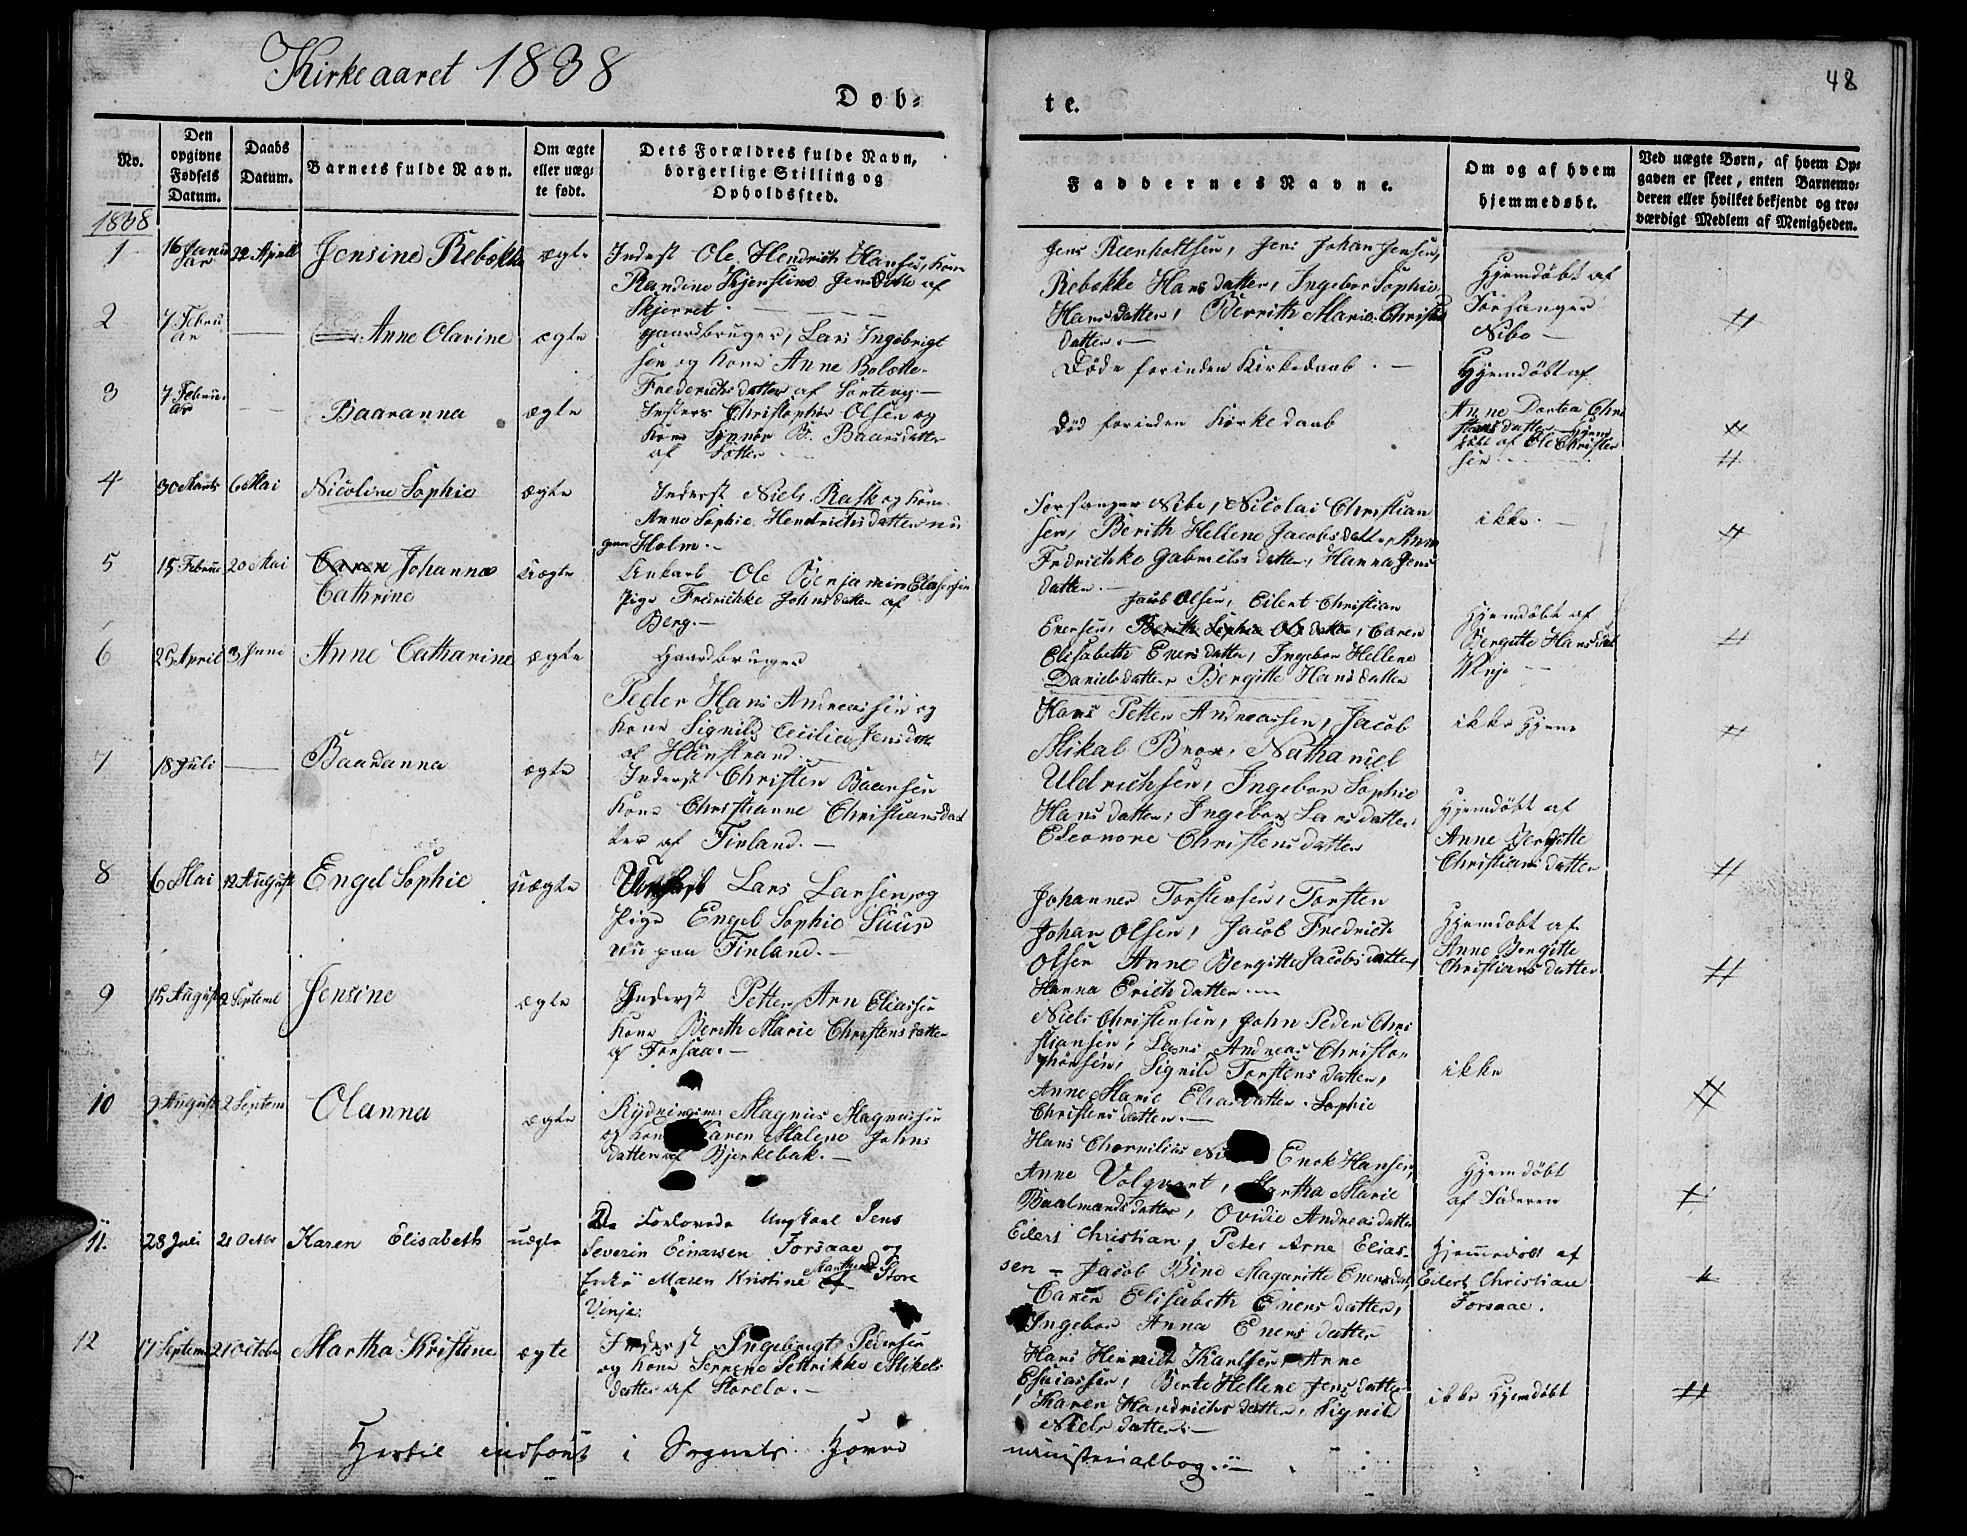 Kirkeaaret 1838
Döb-
te.
48
No.
Den opgivne Fødsels Datum.
Daabs Datum.
Barnets fulde Navn.
Om ægte eller uægte født.
Dets Forældres fulde Navn, borgerlige Stilling og Opholdssted.
Faddernes Navne.
Om og af hvem hjemmedøbt.
Ved uægte Børn, af hvem Opgaven er skeet, enten Barnemoderen eller hvilket bekjendt og troværdigt Medlem af Menigheden.
1838
1 16 Januar 22 April Jensine Rebække ægte
Inderst Ole Hendrich Hansen, Kone
Randine Kjerstine Jensdatte af
Skjerret.
Jens Reenholtsen, Jens Johan Jensen,
Rebække Hansdatter, Ingebor Sophie
Hansdatter, Berrith Marie Christens
datter.
Hjemdöbt af
Forsanger
Nibo
2 7 Februar — Anne Olavine ægte
gaardbruger, Lars Ingebrigt
sen og Kone Anne Bolette
Fredrichsdatter af Sorteng.
Döde forinden Kirkedaab.
Hjemdöbt af
Anne Dortea Chri
stansdatter
3 7 Februar — Baaranna ægte
Christopher Olsen og
Kone Synnör B. Baarsdatter
af
Död forinden Kirkedaab
Hjemdöbt af Ole Christen
sen
4 30 Marts 6 Mai Nicoline Sophie ægte
Inderst Niels Rask og Kone
Anne Sophie Hendrichsdatter
Holm.
Forsanger Nibe, Nicolai Christian
sen, Berith Hellene Jacobsdatter, Anne
Fredrichke Gabrielsdatter, Hanna Jens
datter.
ikke.
5 15 Februar 20 Mai Caren Johanne Cathrine uægte
Unkarl Ole Benjamin Elasersen
Pige Fredrichke Johnsdatter af
Berg.
Jacob Olsen, Eilert Christian
Enersen, Berith Sophie Olsdatter, Caren
Elisabeth Enersdatter, Ingebor Hellene
Danielsdatter Bergitte Hansdatter
Hjemdöbt af
Bergitte Hansdat
Winje
6 25 April 3 Juni Anne Catharine ægte
Gaardbruger
Peder Hans Andreassen og
Kone Signild Cecilia Jensdatt
af Hanstrand.
Hans Petter Andreassen, Jacob
Mikal Bror, Nathaniel
Uldrichsen, Ingebor Sophie
Hansdatter, Ingebor Larsdatter,
Eleonore Christensdatter
ikke Hjem
7 18 Juli — Baaranna ægte
Inderst Christen Baarsen
Kone Christianne Christiansdat
ter af Finland.
Hjemdöbt af
Anne Bergitte
Christiansdatter
8 6 Mai 12 August Engel Sophie uægte
Unkarl Lars Larsen, og
Pige Engel Sophie Suur
nu paa Finland.
Johannes Torstensen, Torsten
Johan Olsen, Jacob Fredrich
Olsen Anne Bergitte Jacobsdatter,
Hanna Erichdatter.
Hjemdöbt af
Anne Bergitte
Christiansdatter
9 15 August 2 Septemb Jensine ægte
Inderst Petter Arn Eliassen
Kone Berith Marie Christensdatter
af Forsaa.
Niels Christensen, John Peder Chri
stiansen, Lars Andreas Christo
phersen, Signild Torstensdatter,
Anne Marie Eliasdatter, Sophie
Christensdatter.
ikke
10 9 August 2 Septem Olanna ægte
Rydningsm: Magnus Magnussen
og Kone Karen Malene Johns
datter af Bjerkebak.
Hans Chornilius Enok Hansen,
Anne Volquart, Martha Marie
Baalmandsdatter, Ovidie Andreasdatter
Hjemdöbt
af Faderen
11. 28 Juli 21 Octbr Karen Elisabeth uægte
De Forlovede Ungkarl Jens
Severin Einarsen Forsaae og
Maren Kristine af Store
Vinje.
Eilert Christian, Peter Arne Elias-
sen - Jacob Bind Magaritte Enersdat,
Caren Elisabeth Enersdatter,
Ingebor Anna Enersdatter
Hjemmedöbt af
Eilert Christian
Forsaae.
12 17 Septem 21 Octobr Martha Kristine ægte
Inderst Ingebrigt Pedersen
og Kone Serrene Pettrikke Mikels
datter af Storelo.
Hans Heinrich Karlsen, Anne
Esaiassen, Berte Hellene Jensdatter
Karen Handrichsdatter, Signil
Nielsdatter.
ikke Hjemdöbt
Hertil indfört i Sognets Hoved
ministerialbog.